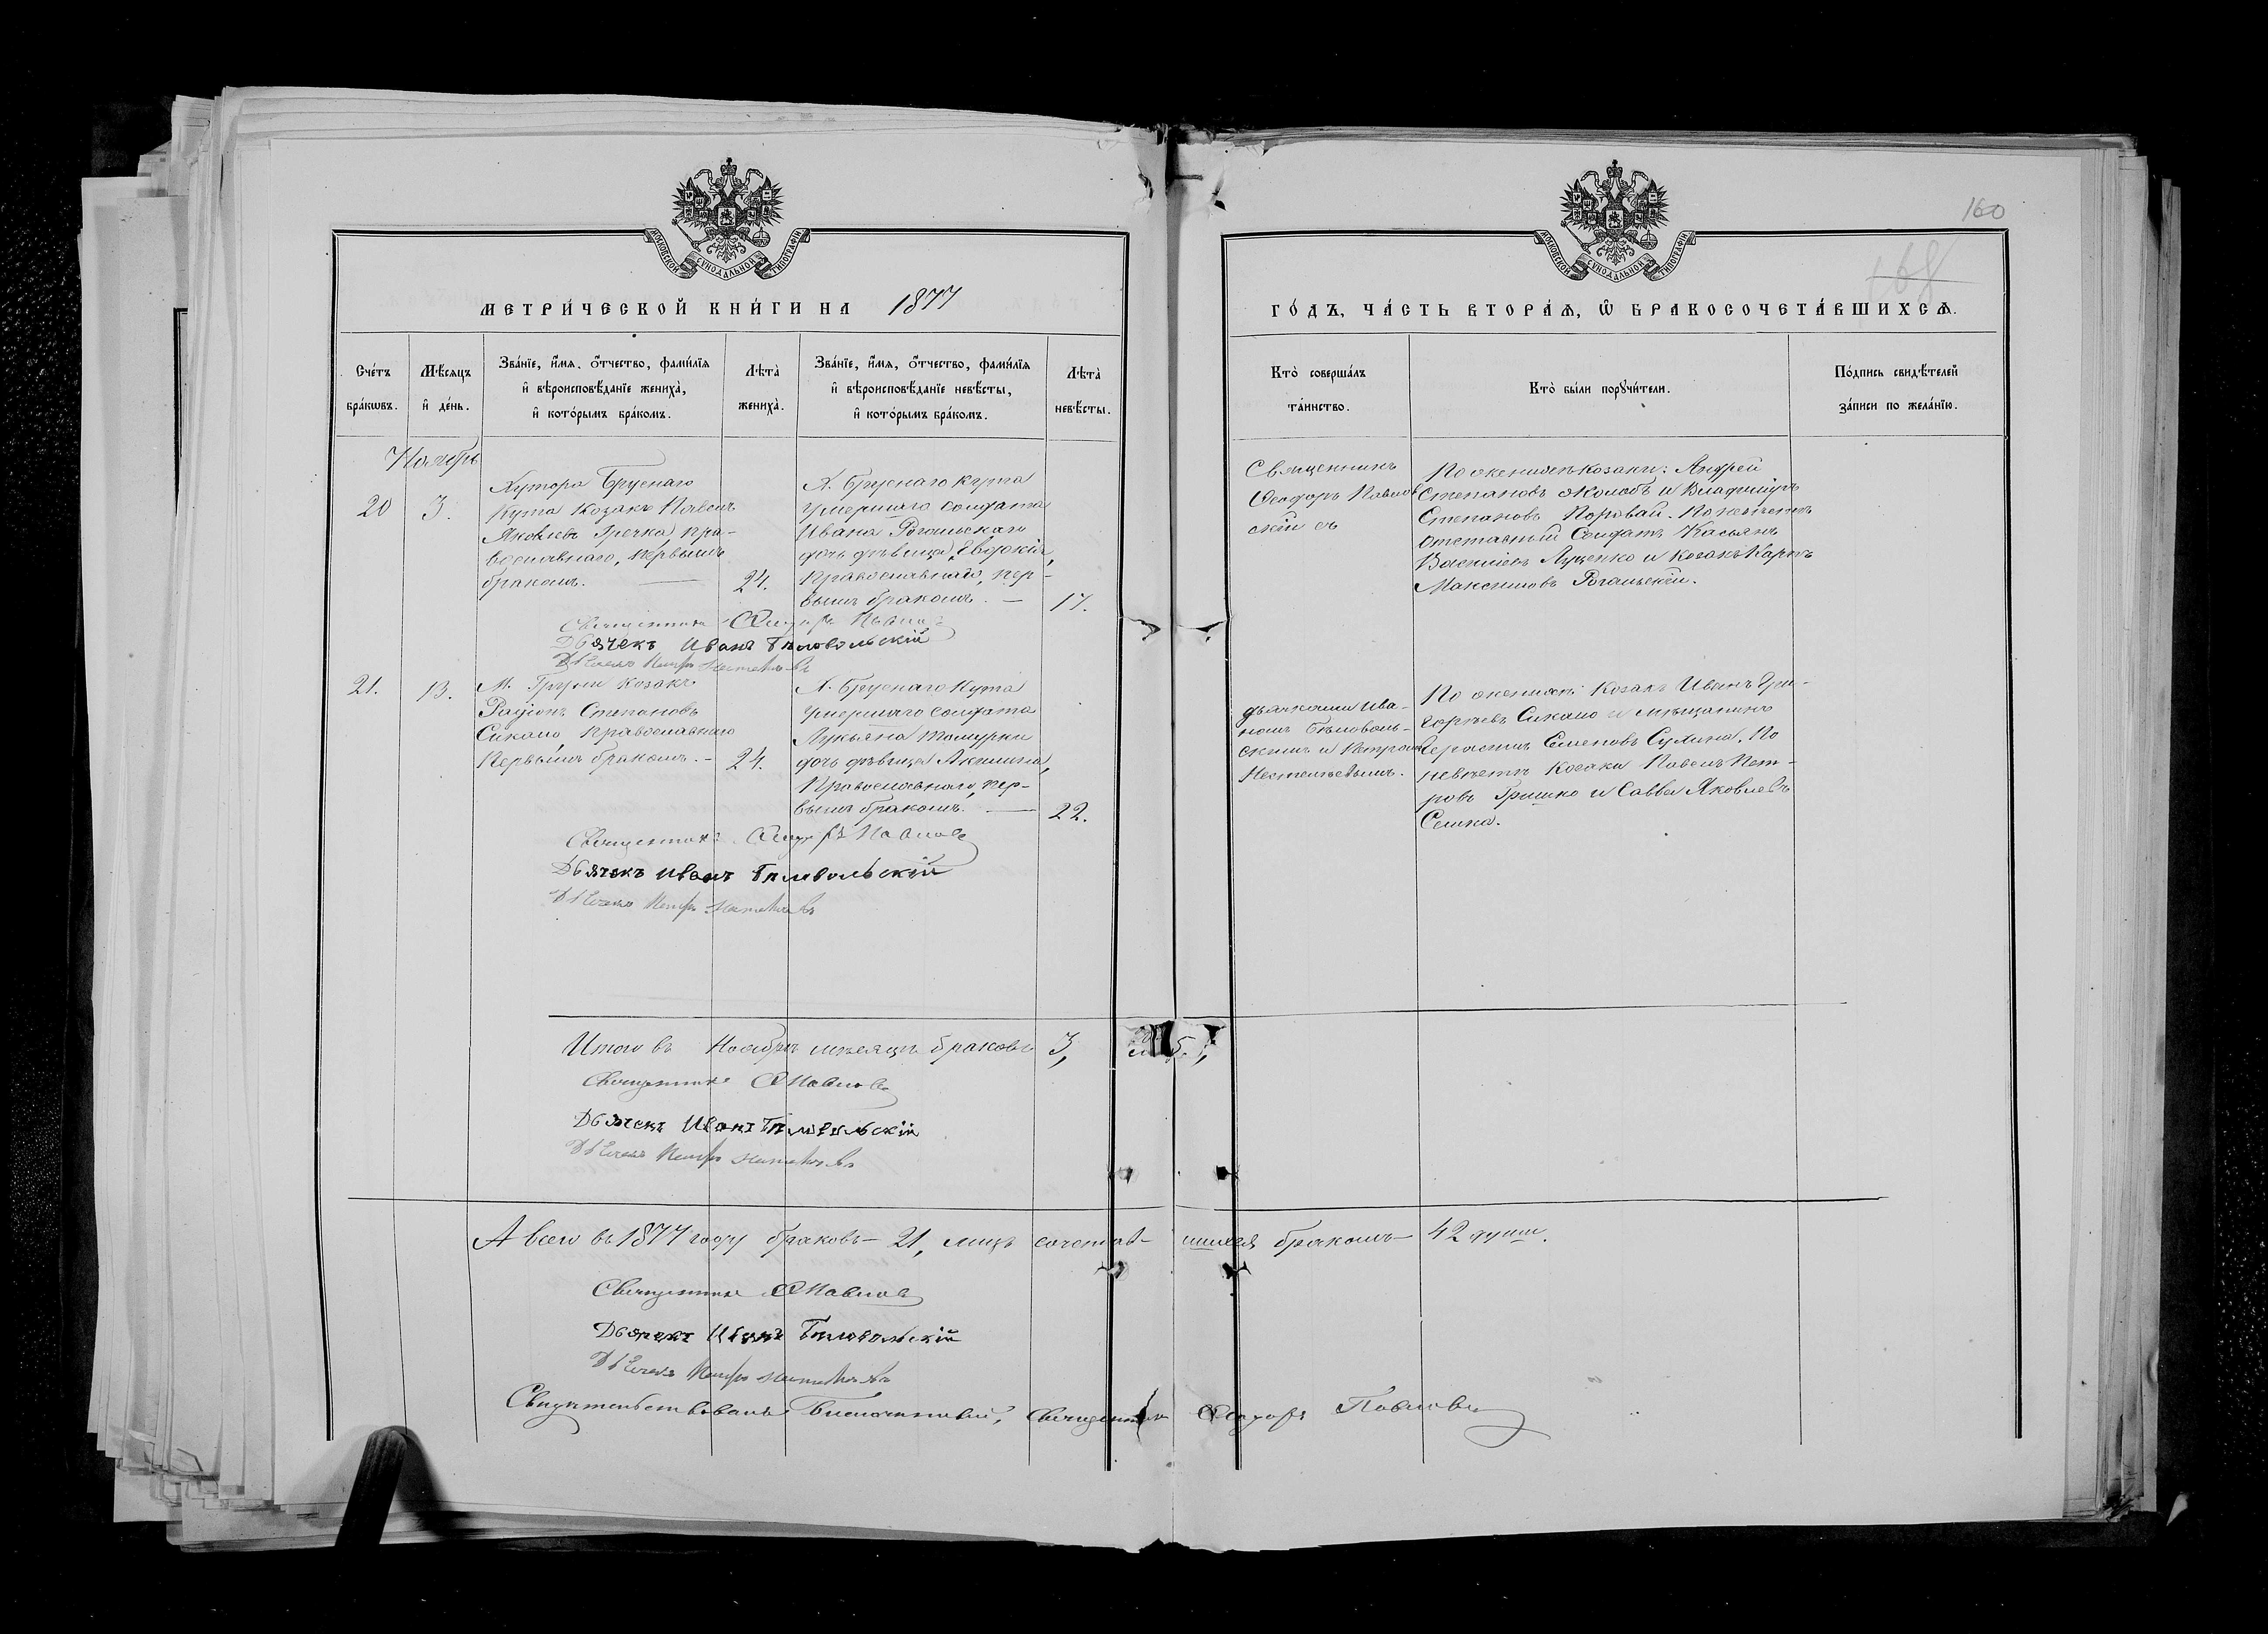 160
168
МОСКОВСКОЙ СУНОДАЛЬНОЙ ТИПОГРАФІИ
МОСКОВСКОЙ СУНОДАЛЬНОЙ ТИПОГРАФІИ
МЕТРИ́ЧЕСКОЙ КНИ́ГИ НА 1877
ГО́ДЪ, ЧА́СТЬ ВТОРА́Ѧ, Ѽ БРАКОСОЧЕТА́ВШИХСѦ.
Сче́тъ
бра́кѡвъ.
Мѣ́сяцъ
и҆ де́нь.
Зва́нїе, и҆́мя, ѻ҆́тчество, фами́лїя
и҆ вѣроисповѣ́данїе жениха̀,
и҆ кото́рымъ бра́комъ.
Лѣта̀
жениха̀.
Зва́нїе, и҆́мя, ѻ҆́тчество, фами́лїя
и҆ вѣроисповѣ́данїе невѣ́сты,
и҆ кото́рымъ бра́комъ.
Лѣта̀
невѣ́сты.
Кто̀ соверша́лъ
та́инство.
Кто̀ бы́ли порꙋчи́тели.
По́дпись свидѣ́телей
за́писи по жела́нїю.
Ноябрь
20
3.
Хутора Бруснаго
Кута козакъ Павелъ
Яковлевъ Гречка, пра-
вославнаго, первымъ
бракомъ.
24.
Х. Бруснаго Кута
умершаго солдата
Ивана Рогальскаго
дочь дѣвица Евдокія,
Православнаго, пер-
вымъ бракомъ. —
17.
Священникъ
Ѳеодоръ Павлов
скій съ
По женихѣ козаки: Андрей
Степановъ Жолобъ и Владиміръ
Степановъ Поровай. По невѣстѣ
отставный Солдатъ Касьянъ
Васильевъ Луценко и козакъ Карпъ
Максимовъ Рогальскій.
Священникъ Ѳеодоръ Павлов
Дьячекъ Иванъ Бѣловольскій
Дьячекъ Петръ
21.
13.
М. Груни козакъ
Родіонъ Степановъ
Сикало, Православнаго
Первымъ бракомъ. –
24.
Х. Бруснаго Кута
умершаго солдата
Лукьяна
дочь дѣвица Акилина,
Православнаго, пер-
вымъ бракомъ. —
22.
дьячками Ива-
номъ Бѣловоль-
скимъ и Петромъ
По женихѣ: Козакъ Иванъ Гри-
горьевъ Сикало и мѣщанинъ
Герасимъ Семеновъ Сулима. По
невѣстѣ козаки Павелъ Пет-
ровъ Гришко и Савва Яковлевъ
Священникъ Ѳеодоръ Павловъ
Дьячекъ Иванъ Бѣловольскій
Дьячекъ Петръ
Итого въ Ноябрѣ мѣсяцѣ браковъ 3,
Священникъ Ѳ Павловъ
Дьячекъ Иванъ Бѣловольскій
Дьячекъ Петръ
А всего въ 1877 году браковъ – 21, лицъ сочетав- шихся бракомъ – 42 души.
Священникъ Ѳ Павловъ
Дьячекъ Иванъ Бѣловольскій
Дьячекъ Петръ
Свидѣтельствовалъ Благочинный, Священникъ Ѳеодоръ Павловъ